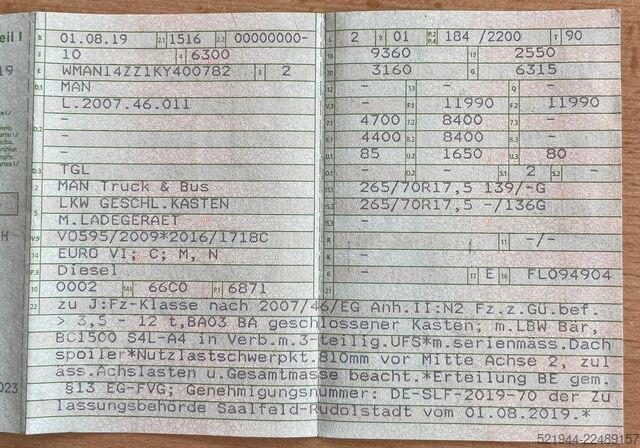 eil I
B 01.08.19 2.1 1516 2.2 00000000-
J 10 4 6300
E WMAN14ZZ1KY400782 3 2
D.1 MAN
L.2007.46.011
D.2 -
-
D.3 TGL
2 MAN Truck & Bus
5 LKW GESCHL.KASTEN
M.LADEGERAET
V.9 VO595/2009*2016/1718C
14 EURO VI; C; M, N
P.3 Diesel
10 0002 14.1 66C0 P.1 6871
L 2 9 01 P.2 P.4 184 /2200 T 90
18 9360 19 2550
20 3160 G 6315
12 - 13 - Q -
V.7 - F.1 11990 F.2 11990
7.1 4700 7.2 8400 7.3 -
8.1 4400 8.2 8400 8.3 -
U.1 85 U.2 1650 U.3 80
O.1 - O.2 - S.1 2 S.2 -
15.1 265/70R17,5 139/-G
15.2 265/70R17,5 -/136G
15.3 -
R - 11 -/-
K -
6 - 17 E 16 FL094904
21
22 zu J:Fz-Klasse nach 2007/46/EG Anh.II:N2 Fz.z.Gü.bef.
> 3,5 - 12 t,BA03 BA geschlossener Kasten; m.LBW Bär,
BC1500 S4L-A4 in Verb.m.3-teilig.UFS*m.serienmäss.Dach
spoiler*Nutzlastschwerpkt.810mm vor Mitte Achse 2, zul
äss.Achslasten u.Gesamtmasse beacht.*Erteilung BE gem.
§13 EG-FVG; Genehmigungsnummer: DE-SLF-2019-70 der Zu
lassungsbehörde Saalfeld-Rudolstadt vom 01.08.2019.*
H
023
521944-22489137